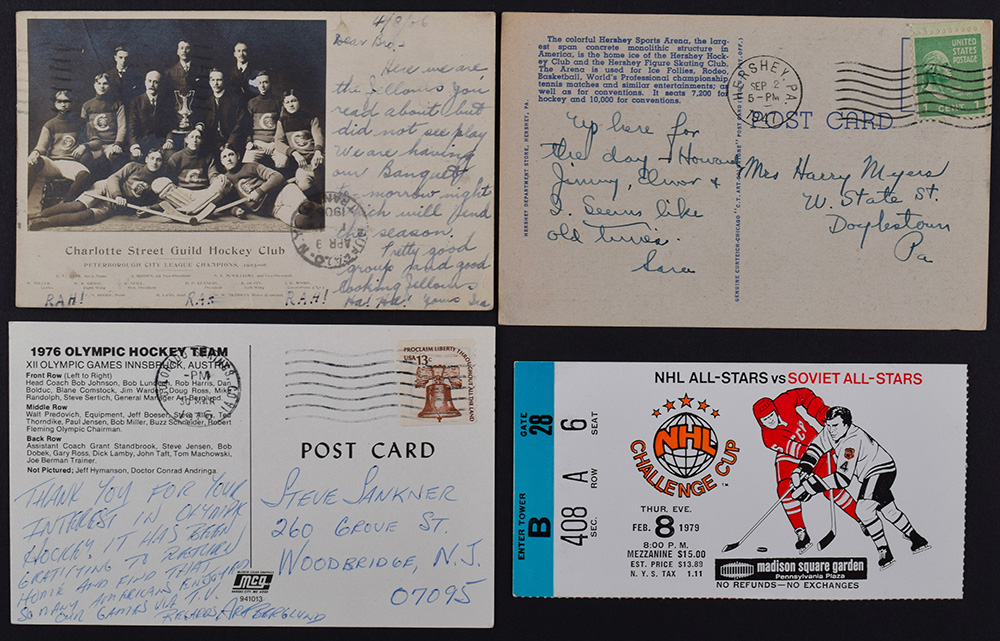 4/8/06
Dear Bro-
Here we are
the fellows you
read about but
did not see play
We are having
our Banquet
to-morrow night
which will end
the season.
Pretty good
group and good
looking fellows
Ha! Ha! Yours Ira
Charlotte Street Guild Hockey Club
PETERBOROUGH CITY LEAGUE CHAMPIONS,
RAH! RAH! RAH!
BUFFALO, N.Y.
APR 9
The colorful Hershey Sports Arena, the larg-
est span concrete monolithic structure in
America, is the home ice of the Hershey Hock-
ey Club and the Hershey Figure Skating Club.
The Arena is used for Ice Follies, Rodeo,
Basketball, World's Professional championship
tennis matches and similar entertainments; as
well as for conventions. It seats 7,200 for
hockey and 10,000 for conventions.
HERSHEY DEPARTMENT STORE, HERSHEY, PA.
GENUINE CURTEICH-CHICAGO
HERSHEY, PA.
SEP 2
5-PM
1947
UNITED
STATES
POSTAGE
1 CENT 1
POST CARD
Up here for
the day - Howard
Jimmy, &
I. Seems like
old times.
Sara
Mrs Harry Myers
W. State St.
Doylestown
Pa
1976 OLYMPIC HOCKEY TEAM
XII OLYMPIC GAMES INNSBRUCK, AUSTRIA
Front Row (Left to Right)
Head Coach Bob Johnson, Bob Lundeen, Rob Harris, Dan
Bolduc, Blane Comstock, Jim Warden, Doug Ross, Mike
Randolph, Steve Sertich, General Manager Art Berglund.
Middle Row
Walt Predovich, Equipment, Jeff Boeser, Steve Alley, Ted
Thorndike, Paul Jensen, Bob Miller, Buzz Schneider, Robert
Fleming Olympic Chairman.
Back Row
Assistant Coach Grant Standbrook, Steve Jensen, Bob
Dobek, Gary Ross, Dick Lamby, John Taft, Tom Machowski,
Joe Berman Trainer.
Not Pictured; Jeff Hymanson, Doctor Conrad Andringa.
COLORADO SPRINGS COLO
PM
30 MAR
PROCLAIM LIBERTY THROUGHOUT ALL THE LAND
USA 13c
POST CARD
THANK YOU FOR YOUR
INTEREST IN OLYMPIC
HOCKEY. IT HAS BEEN
GRATIFYING TO RETURN
HOME AND FIND THAT
SO MANY AMERICANS ENJOYED
OUR GAMES VIA T.V.
REGARDS ART BERGLUND
mcg
941013
STEVE SANKNER
260 GROVE ST.
WOODBRIDGE, N.J.
07095
ENTER TOWER
B
GATE
28
408
SEC.
A
ROW
6
SEAT
NHL ALL-STARS vs SOVIET ALL-STARS
NHL
CHALLENGE CUP
TM
THUR. EVE.
FEB. 8 1979
8:00 P.M.
MEZZANINE $15.00
EST. PRICE $13.89
N.Y.S. TAX 1.11
CCCP
4
madison square garden
Pennsylvania Plaza
NO REFUNDS—NO EXCHANGES